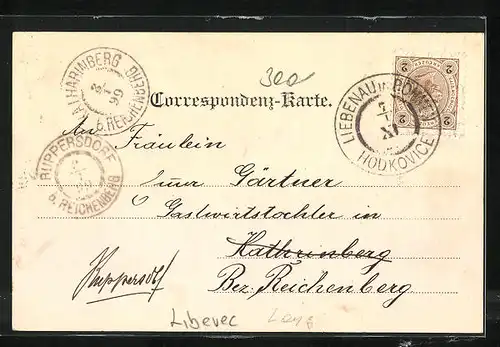 KATHARINBERG
b. REICHENBERG
99
300
LIEBENAU in BÖHMEN
HODKOVICE
XI
2
2
Correspondenz-Karte.
RUPPERSDORF
b. REICHENBERG
An Fräulein
Gärtner
Gastwirtstochter in
Kathrinberg
Ruppersdorf
Bez. Reichenberg
Liberec